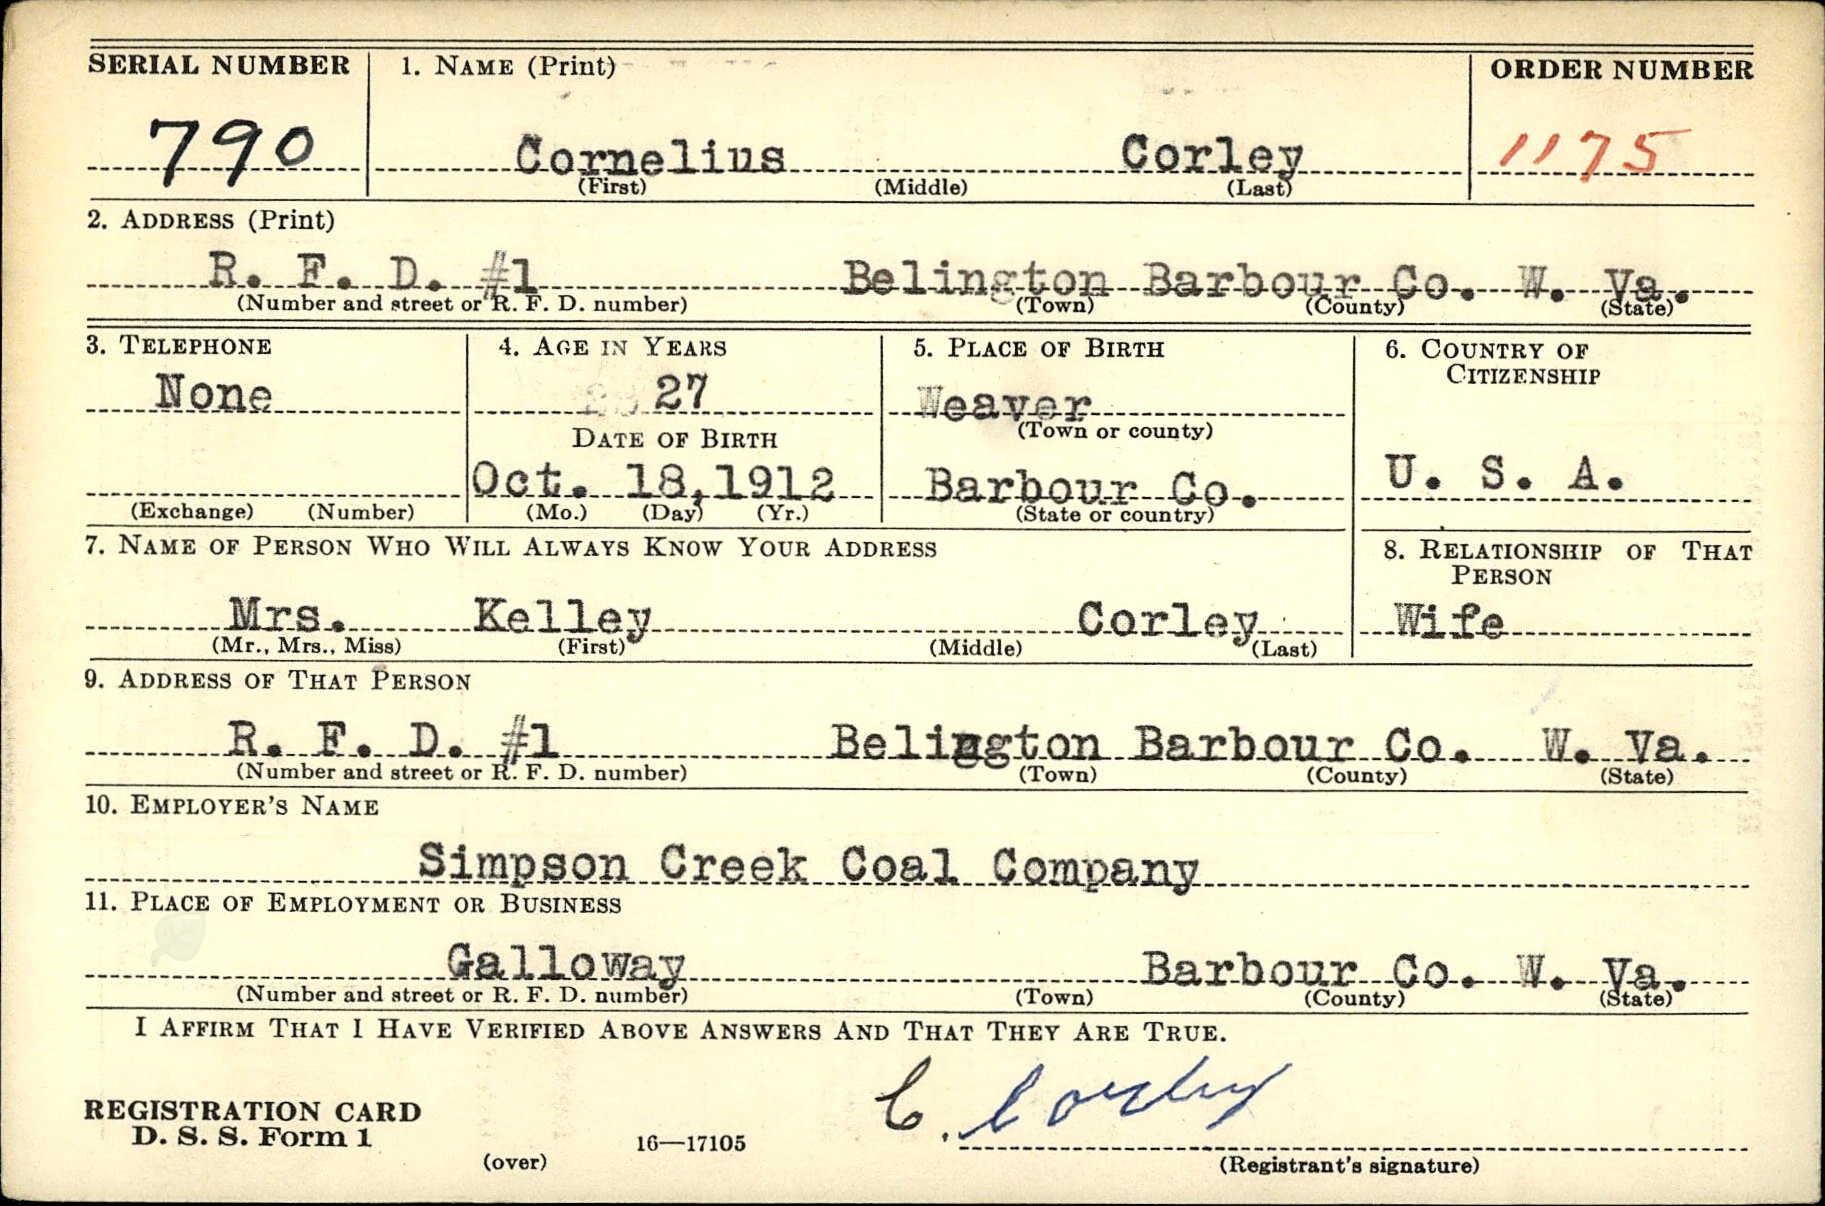 SERIAL NUMBER 1. NAME (Print) ORDER NUMBER
790 Cornelius Corley 1175
(First) (Middle) (Last)
2. ADDRESS (Print)
R. F. D. #1 Belington Barbour Co. W. Va.
(Number and street or R. F. D. number) (Town) (County) (State)
3. TELEPHONE 4. AGE IN YEARS 5. PLACE OF BIRTH 6. COUNTRY OF
CITIZENSHIP
None 27 Weaver
DATE OF BIRTH (Town or county)
Oct. 18,1912 Barbour Co. U. S. A.
(Exchange) (Number) (Mo.) (Day) (Yr.) (State or country)
7. NAME OF PERSON WHO WILL ALWAYS KNOW YOUR ADDRESS 8. RELATIONSHIP OF THAT
PERSON
Mrs. Kelley Corley Wife
(Mr., Mrs., Miss) (First) (Middle) (Last)
9. ADDRESS OF THAT PERSON
R. F. D. #1 Belington Barbour Co. W. Va.
(Number and street or R. F. D. number) (Town) (County) (State)
10. EMPLOYER'S NAME
Simpson Creek Coal Company
11. PLACE OF EMPLOYMENT OR BUSINESS
Galloway Barbour Co. W. Va.
(Number and street or R. F. D. number) (Town) (County) (State)
I AFFIRM THAT I HAVE VERIFIED ABOVE ANSWERS AND THAT THEY ARE TRUE.
C. Corley
REGISTRATION CARD
D. S. S. Form 1 16—17105
(over) (Registrant's signature)